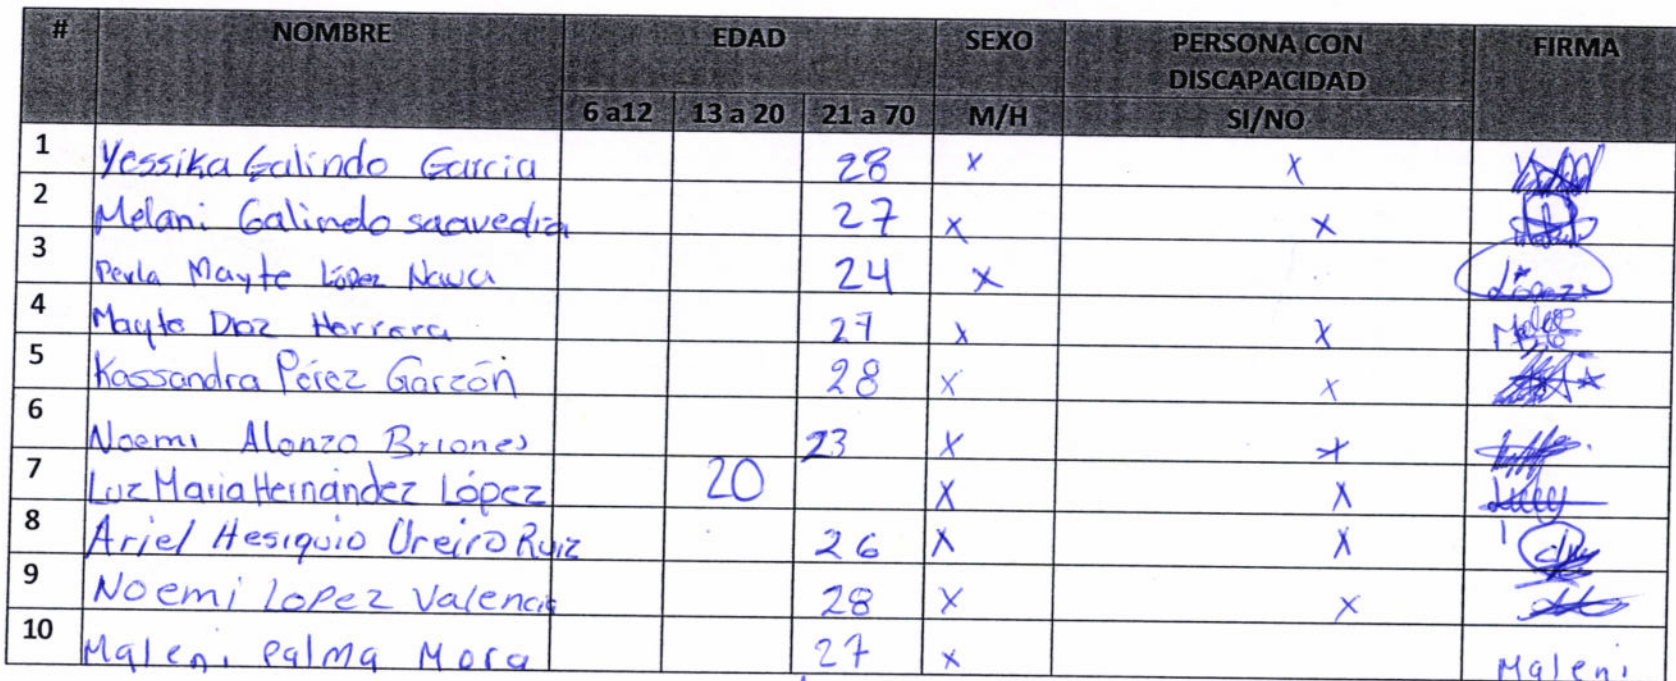 # NOMBRE EDAD SEXO PERSONA CON DISCAPACIDAD FIRMA
6 a12 13 a 20 21 a 70 M/H SI/NO
1 Yessika Galindo Garcia 28 x x
2 Melani Galindo saavedra 27 x x
3 Perla Mayte López Nava 24 x
4 Mayte Diaz Herrera 27 x x
5 Kassandra Pérez Garzón 28 x x
6 Noemi Alonzo Briones 23 x x
7 Luz Maria Hernández López 20 X X
8 Ariel Hesiquio Ureiro Ruiz 26 X X
9 Noemi Lopez Valencia 28 x x
10 Maleni Palma Mora 27 x Maleni